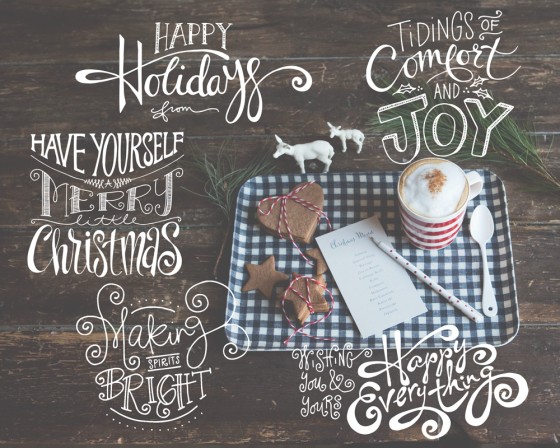 HAPPY
Holidays
from
TIDINGS OF
Comfort
AND
JOY
HAVE YOURSELF
A
MERRY
little
Christmas
Making
SPIRITS
BRIGHT
WISHING
YOU &
YOURS
Happy
Everything
Christmas Menu